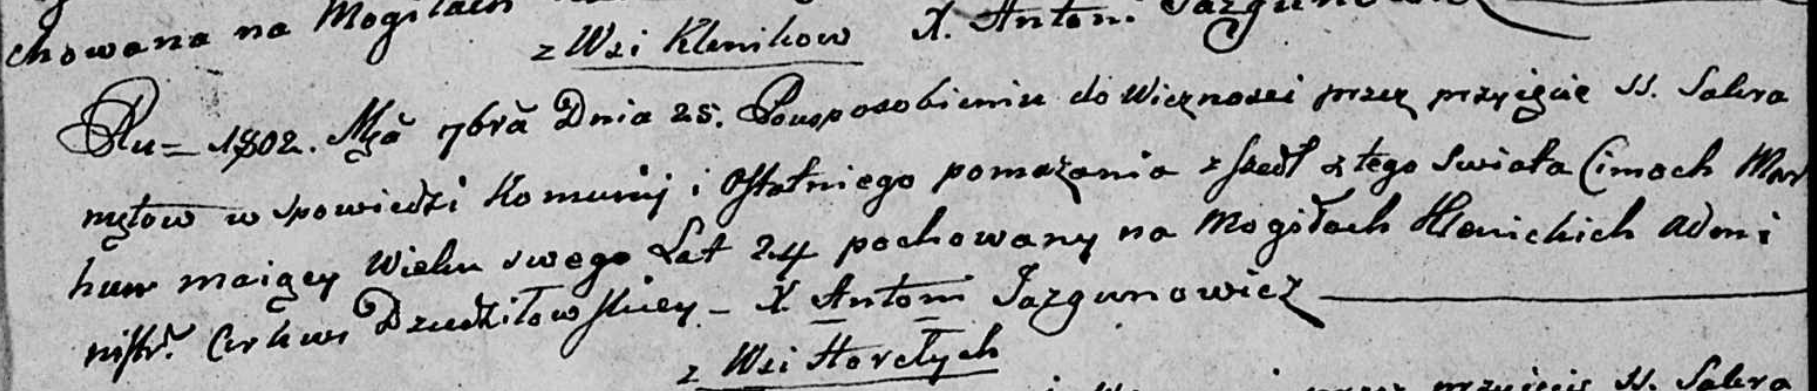 chowana na Mogiłach
z Wsi Klenikow X. Antoni Jazgunowicz
Ru= 1802. Mcă 7bră Dnia 25. Pousposobieniu do Wiecznosci przez przyięcie SS. Sakra
mętow w spowiedzi Komunij i Ostatniego pomazania z szedł z tego Swiata Cimoch Mar
kuw maiącey Wieku swego Lat 24 pochowany na Mogiłach Klenickich Admi
nistr. Cerkwi Dziedziłowskiey – X. Antoni Jazgunowicz
z Wsi Horełych
przez przyięcie SS. Sakra